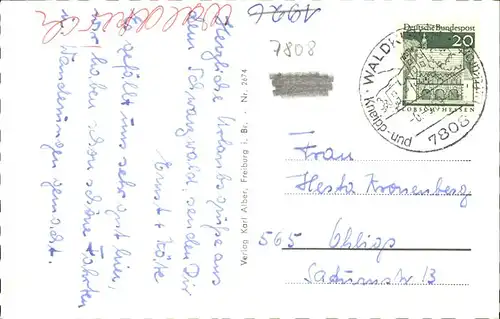 Waldkirch
1926
7808
Herzliche Urlaubsgrüße aus
dem Schwarzwald senden Dir
Ernst + Käte
Es gefällt uns sehr gut hier,
wir haben schon schöne Fahrten
u. Wanderungen gemacht.
Verlag Karl Alber, Freiburg i. Br. · Nr. 2674
Deutsche Bundespost
20
LORSCH/HESSEN
WALDK
Kneipp- und
7808
Frau
Hesta Kronenberg
565 Ohligs
Sadurnstr 13